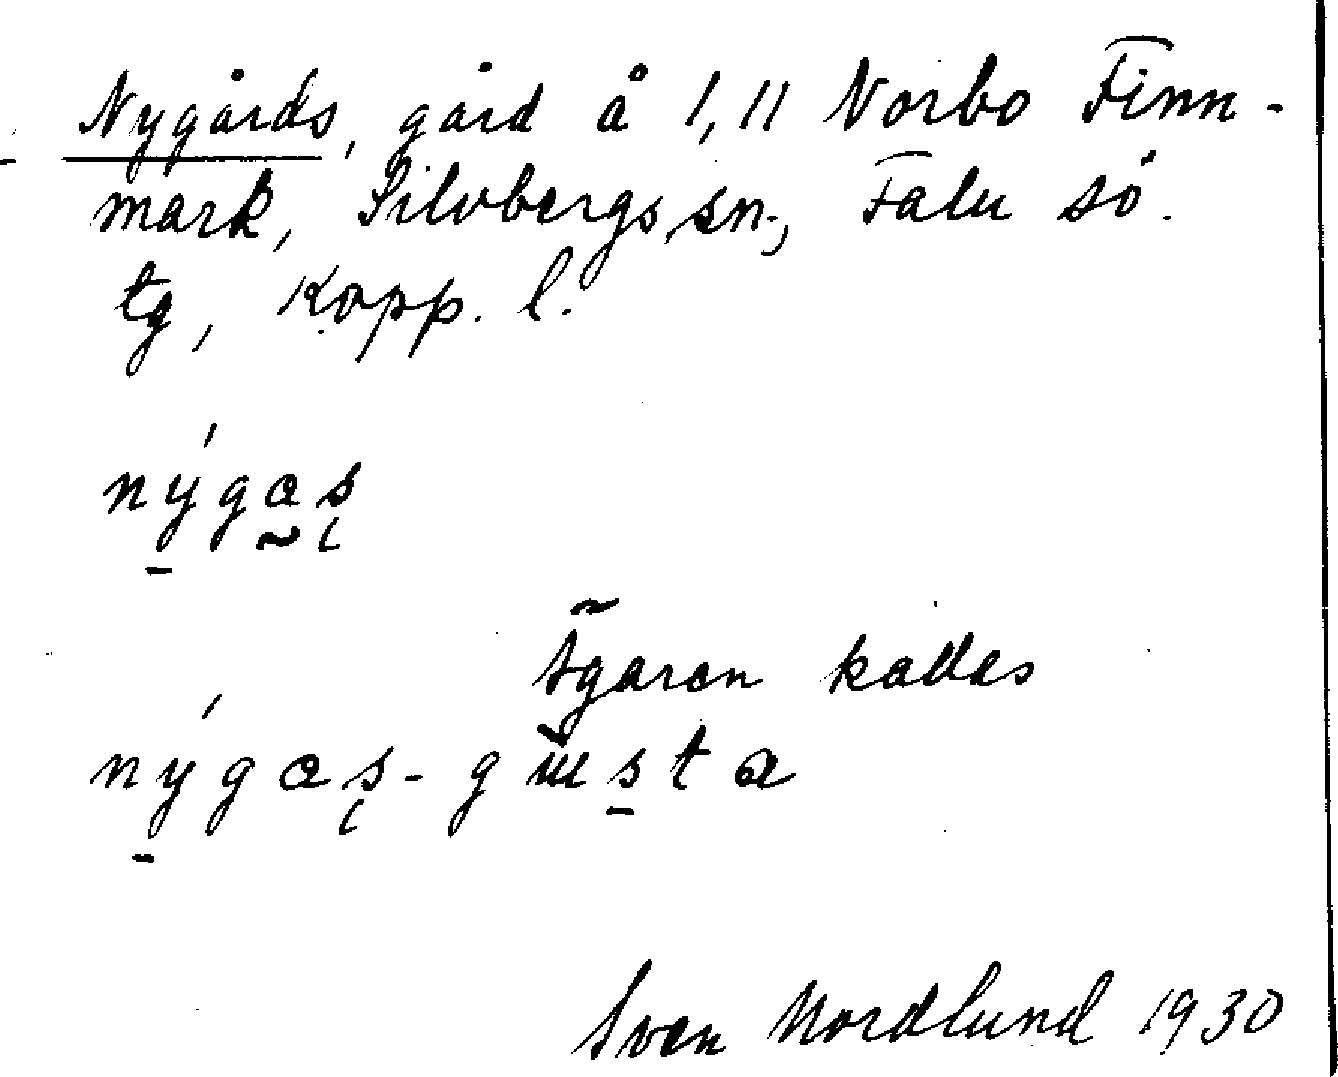 Nygårds, gård å 1,11 Norbo Finn-
mark, Silvbergs sn, Falu sö.
tg, Kopp. l.
nýgas
Ägaren kallas
nýgas-gusta
Sven Nordlund 1930